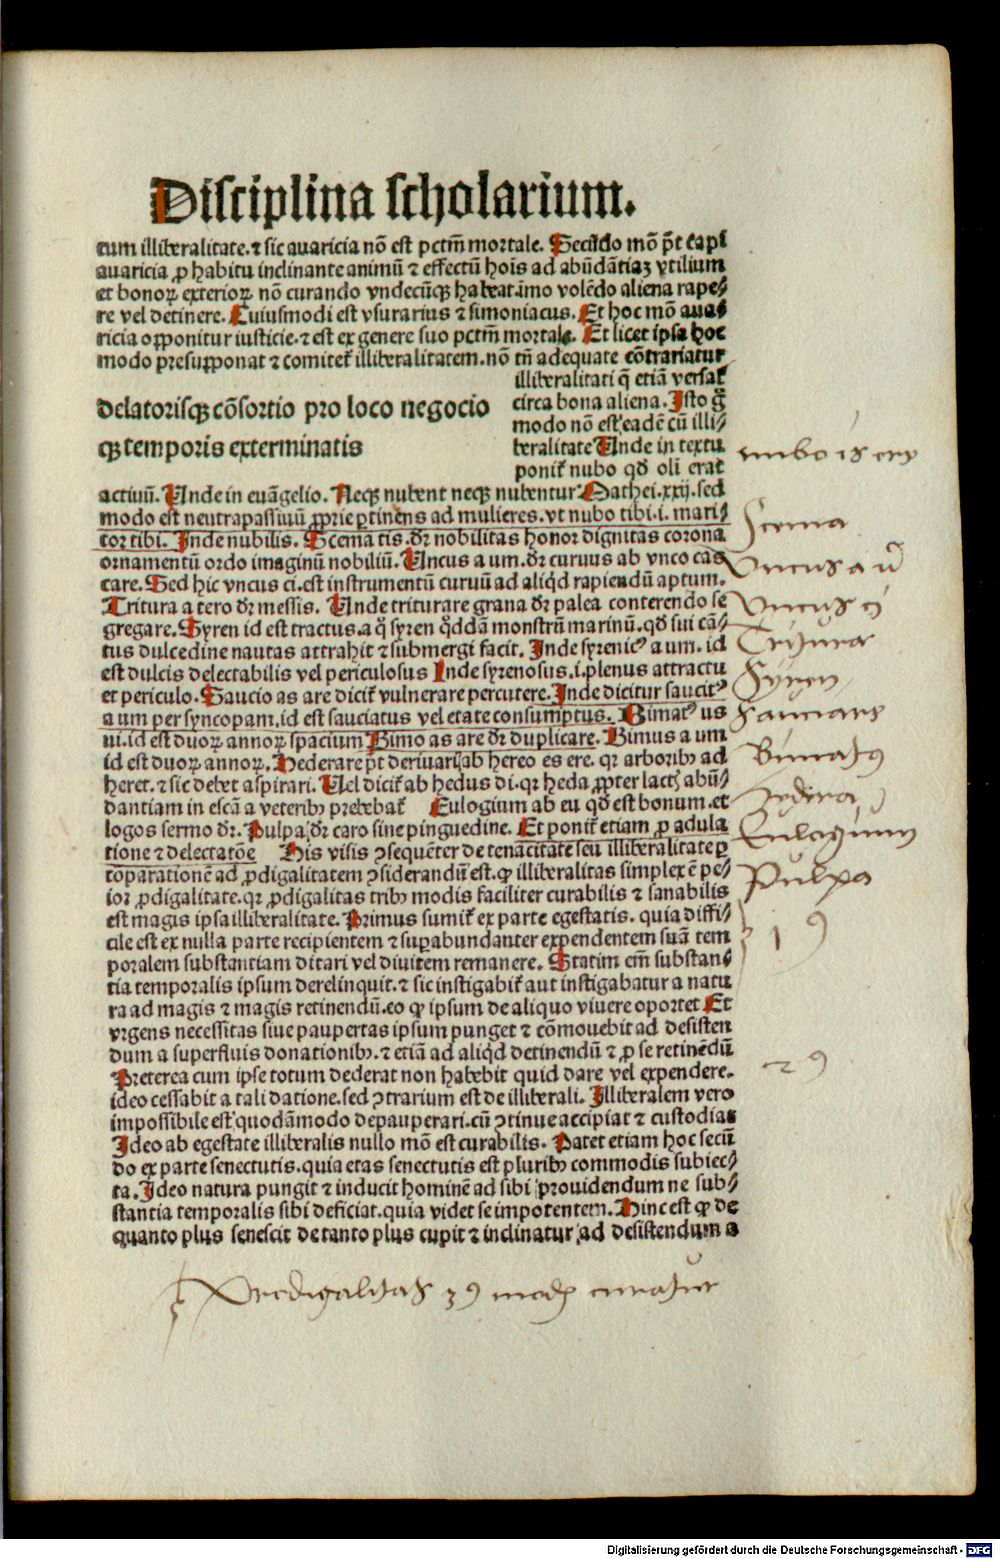 Disciplina scholarium.
cum illiberalitate.⁊ sic auaricia nō est pctm̄ mortale. Secūdo mō pōt capi
auaricia ꝓ habitu inclinante animū ⁊ effectū hoīs ad abūdātiaꝫ vtilium
et bonoꝝ exterioꝝ nō curando vndecūqꝫ habeat.imo volēdo aliena rape⸗
re vel detinere. Cuiusmodi est vsurarius ⁊ simoniacus. Et hoc mō aua⸗
ricia opponitur iusticie.⁊ est ex genere suo pctm̄ mortale. Et licet ipsa hoc
modo presupponat ⁊ comitet̄ illiberalitatem.nō tn̄ adequate cōtrariatur
illiberalitati q̄ etiā versat̄
delatorisqꝫ cōsortio pro loco negocio
circa bona aliena. Isto g̊
modo nō est eadē cū illi⸗
qꝫ temporis exterminatis
beralitate Unde in textu
ponit̄ nubo qd̄ oli erat
actiuū. Unde in euāgelio. Neqꝫ nubent neqꝫ nubentur Mathei.xxij.sed
modo est neutrapassiuū ꝓprie ꝑtinēns ad mulieres.vt nubo tibi.i. mari⸗
tor tibi. Inde nubilis. Scema tis.dr̄ nobilitas honor dignitas corona
ornamentū ordo imaginū nobiliū. Uncus a um.dr̄ curuus ab vnco cas
care. Sed hic vncus ci.est instrumentū curuū ad aliqd rapiendū aptum.
Tritura a tero dr̄ messis. Unde triturare grana dr̄ palea conterendo se
gregare. Syren id est tractus.a q̊ syren q̄dā monstrū marinū.qd̄ sui cā⸗
tus dulcedine nautas attrahit ⁊ submergi facit. Inde syrenicꝰ a um. id
est dulcis delectabilis vel periculosus Inde syrenosus.i.plenus attractu
et periculo. Saucio as are dicit̄ vulnerare percutere. Inde dicitur saucitꝰ
a um per syncopam.id est sauciatus vel etate consumptus. Bimatꝰ us
ui.id est duoꝝ annoꝝ spacium Bimo as are dr̄ duplicare. Bimus a um
id est duoꝝ annoꝝ. Hederare pōt deriuari ab hereo es ere. qꝛ arboribꝰ ad
heret.⁊ sic debet aspirari. Uel dicit̄ ab hedus di.qꝛ heda ꝓpter lactꝭ abū⸗
dantiam in escā a veteribꝰ prebebat̄ Eulogium ab eu qd̄ est bonum.et
logos sermo dr̄. Pulpa dr̄ caro sine pinguedine. Et ponit̄ etiam ꝓ adula
tione ⁊ delectatōe His visis ꝯsequēter de tenacitate seu illiberalitate ꝑ
cōparationē ad ꝓdigalitatem ꝯsiderandū est.qꝙ illiberalitas simplex ē pe⸗
ior ꝓdigalitate.qꝛ ꝓdigalitas tribꝰ modis faciliter curabilis ⁊ sanabilis
est magis ipsa illiberalitate. Primus sumit̄ ex parte egestatis. quia diffi⸗
cile est ex nulla parte recipientem ⁊ suꝑabundanter expendentem suā tem
poralem substantiam ditari vel diuitem remanere. Statim em̄ substan⸗
tia temporalis ipsum derelinquit.⁊ sic instigabit̄ aut instigabatur a natu
ra ad magis ⁊ magis retinendū.eo qꝙ ipsum de aliquo viuere oportet Et
vrgens necessitas siue paupertas ipsum punget ⁊ cōmouebit ad desisten
dum a superfluis donationibꝰ.⁊ etiā ad aliqd detinendū ⁊ ꝓ se retinēdū
Preterea cum ipse totum dederat non habebit quid dare vel expendere.
ideo cessabit a tali datione.sed ꝯtrarium est de illiberali. Illiberalem vero
impossibile est quodāmodo depauperari.cū ꝯtinue accipiat ⁊ custodiat
Ideo ab egestate illiberalis nullo mō est curabilis. Patet etiam hoc secū
do ex parte senectutis.quia etas senectutis est pluribꝰ commodis subiec⸗
ta. Ideo natura pungit ⁊ inducit hominē ad sibi prouidendum ne sub⸗
stantia temporalis sibi deficiat.quia videt se impotentem. Hinc est qꝙ de
quanto plus senescit de tanto plus cupit ⁊ inclinatur ad desistendum a
nubo is ere
Scema
Vncus a ū
Vncus ci
Tritura
Syren
Sauciare
Bimatꝰ
Eulogium
Pulpa
1 ꝰ
2 ꝰ
Prodigalitas 3ꝰ modꝭ curatur
Digitalisierung gefördert durch die Deutsche Forschungsgemeinschaft - DFG